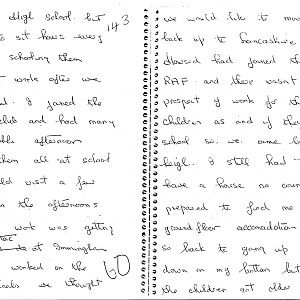 High school. but
143
sit hours every
schooling them
work after we
I joined the
club and had many
afternoon
them all at school
visit a few
the afternoons
work was getting
at Immingham
worked on the
60
we thought
we would like to move
back up to Lancashire
Howard had joined the
RAF - and there wasn't
prospect of work for th
children as and if they
school so. we. came b
Leigh. I still had
have a house no coun
prepared to find me
ground floor accomodation
so back to going up
down on my bottom but
the children got older